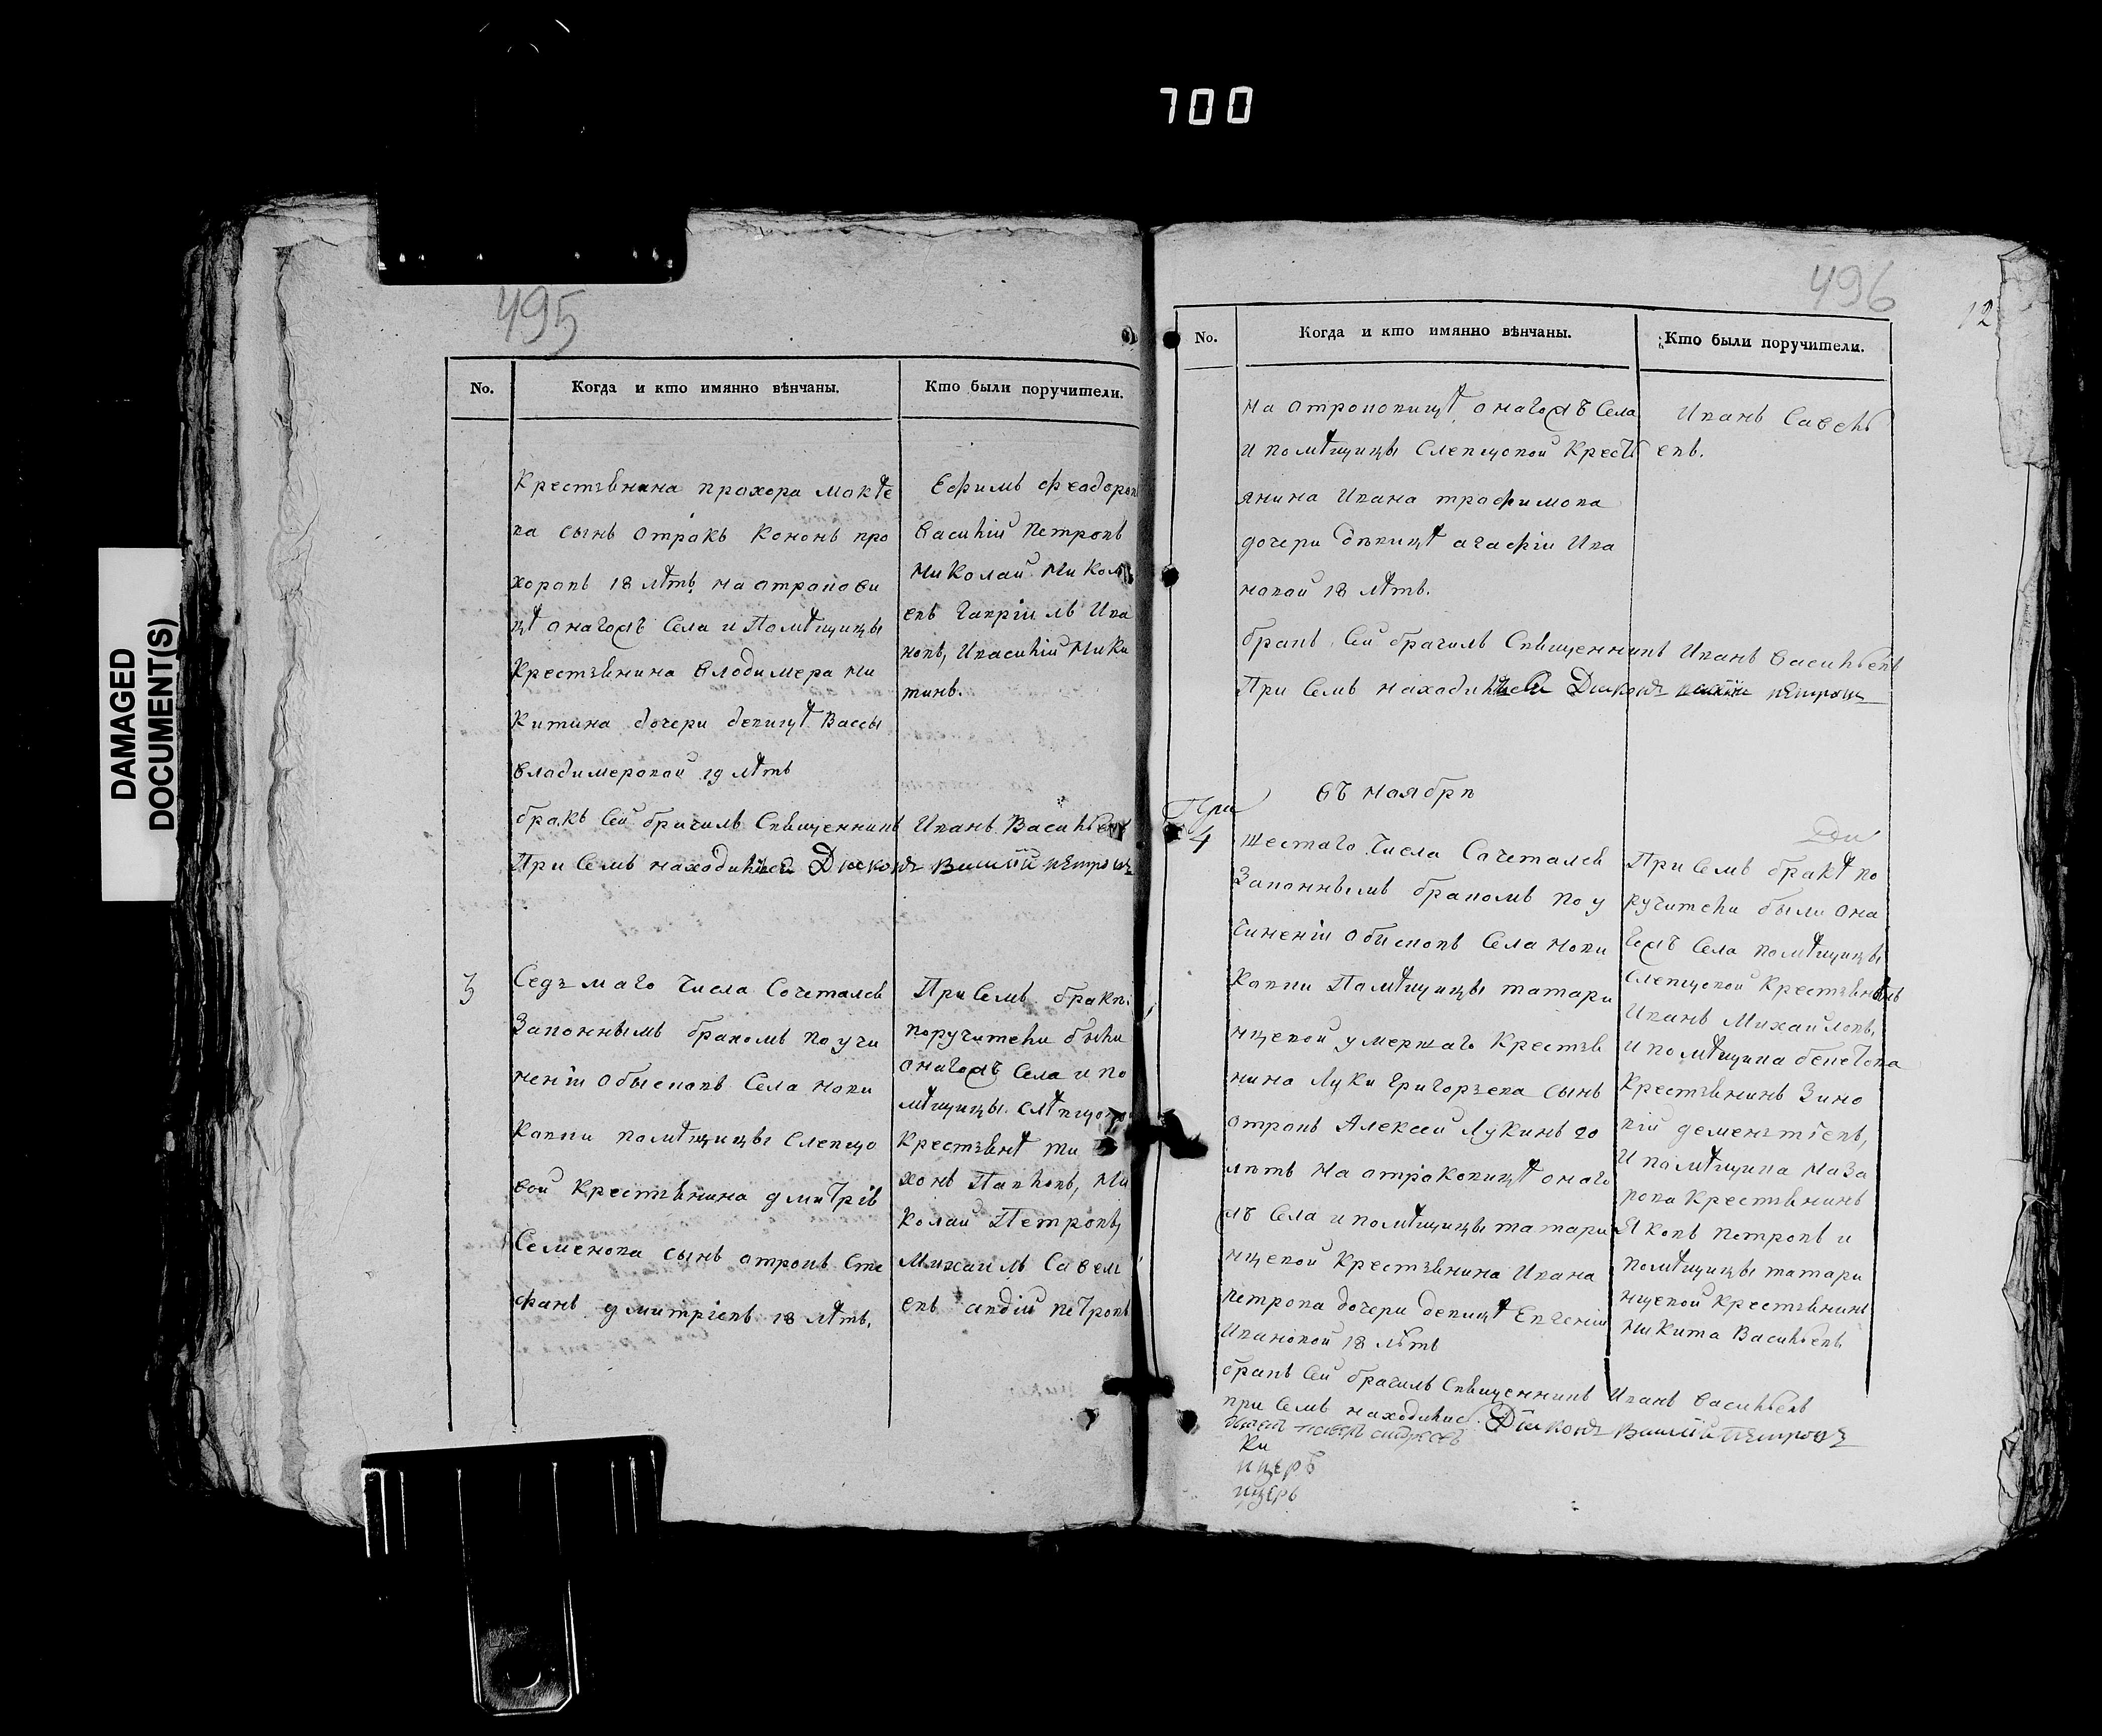 700
DAMAGED
DOCUMENT(S)
495
No.
Когда и кто имянно вѣнчаны.
Кто были поручители.
Крестьянина прохора мокѣе
ва сынъ отракъ Кононъ про
хоровъ 18 лѣтъ на отрокови
цѣ оногожъ Села и Помѣщицы
Крестьянина Владимера Ни
Китина дочери девицѣ Вассы
Владимеровой 19 лѣтъ
Ефимъ Феодоровъ
Василій Петровъ
Николай Никола
евъ Гавріилъ Ива
новъ, Ивасилій Ники
тинъ.
бракъ Сей брачилъ Священникъ Иванъ Васильевъ
При Семъ находились Діаконъ Василій Петровъ
3
Седьмаго Числа Сочетался
Законнымъ бракомъ по учи
неніи Обысковъ Села нови
Ковки помѣщицы Слепцо
вой Крестьянина дмитрія
Семенова сынъ отрокъ Сте
фанъ дмитріевъ 18 лѣтъ,
При Семъ бракѣ
поручители были
оногожъ Села и по
мѣщицы Слѣпцовой
Крестьянѣ ти
хонъ Павловъ, Ни
колай Петровъ,
Михаилъ Савел
евъ авдій Петровъ
496
12
No.
Когда и кто имянно вѣнчаны.
Кто были поручители.
на отроковицѣ оногожъ Села
и помѣщицы Слепцовой Кресть
янина Ивана трофимова
дочери дѣвицѣ агафіи Ива
новой 18 лѣтъ.
Иванъ Савель
евъ.
бракъ Сей брачилъ Священникъ Иванъ Васильевъ
При Семъ находились Діаконъ Василій Петровъ
Въ ноябрѣ
При
4
шестаго Числа Сочетался
Законнымъ бракомъ по у
чиненіи Обысковъ Села нови
Ковки Помѣщицы татари
нцевой умершаго Крестья
нина Луки григорьева сынъ
отрокъ Алексей Лукинъ 20
лѣтъ На отроковицѣ оного
жъ Села и помѣщицы татари
нцевой Крестьянина Ивана
петрова дочери девицѣ Евгеніи
Ивановой 18 лѣтъ
Ди
При Семъ бракѣ по
ручители были оно
гожъ Села помѣщицы
Слепцовой Крестьянинъ
Иванъ Михаиловъ,
и помѣщика бекетова
Крестьянинъ Зино
вій дементіевъ,
И помѣщика наза
рова Крестьянинъ
Яковъ Петровъ и
помѣщицы татари
нцевой Крестьянинъ
Никита Васильевъ
бракъ Сей брачилъ Священникъ Иванъ Васильевъ
при Семъ находились Діаконъ Василій Петровъ
Ки
ицеръ
ицеръ